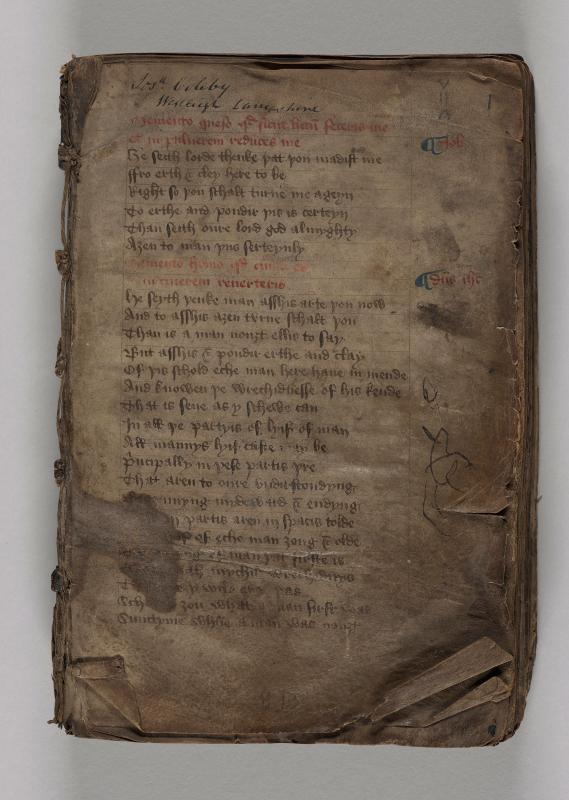 Josh Coleby
Lancashire
1
Memento queso qd sicut lutu feceris me
¶ Job
et in puluerem reduces me
He seith lorde thenke þat þou madist me
ffro erth & cley here to be
Right so þou schalt turne me aȝeyn
To erthe and poudir þis is certeyn
Than seith oure lord god almyghty
Aȝen to man þus serteynly
Memento homo qd cinis es
¶ dns
in cinerem reuerteris
He seyth þenke man asshis arte þou now
And to asshis aȝen turne schalt þou
Than is a man nouȝt ellis to say
But asshis & poudir erthe and clay
Of þis schold eche man here haue in mende
And knowen þe wrechidnesse of his kende
That is sene as y schewe can
In all þe partyis of lyif of man
All mannys lyif caste may be
Principally in þese partis þre
That aren to oure vndirstondyng
& endyng
partis aren in spacis tolde
of eche man ȝong & olde
of man þat
ȝou what man first was
Sumtyme whãne a man was nouȝt